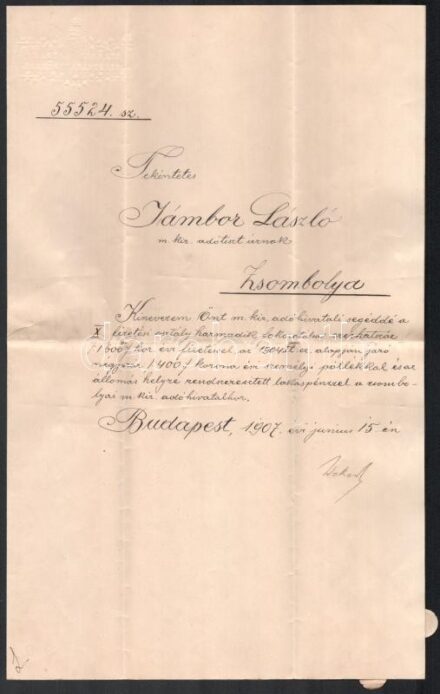 55524. sz.
Tekintetes
Jámbor László
m. kir. adótiszt úrnak
Zsombolya
Kinevezem Önt m. kir. adóhivatali segéddé a
X fizetési osztály harmadik fokozatába
1600 kor. évi fizetéssel, az alapján járó
1400 korona évi személyi pótlékkal és az
állomás helyre rendszeresített lakáspénzzel a zsombo-
lyai m. kir. adóhivatalhoz.
Budapest, 1907. évi junius 15-én